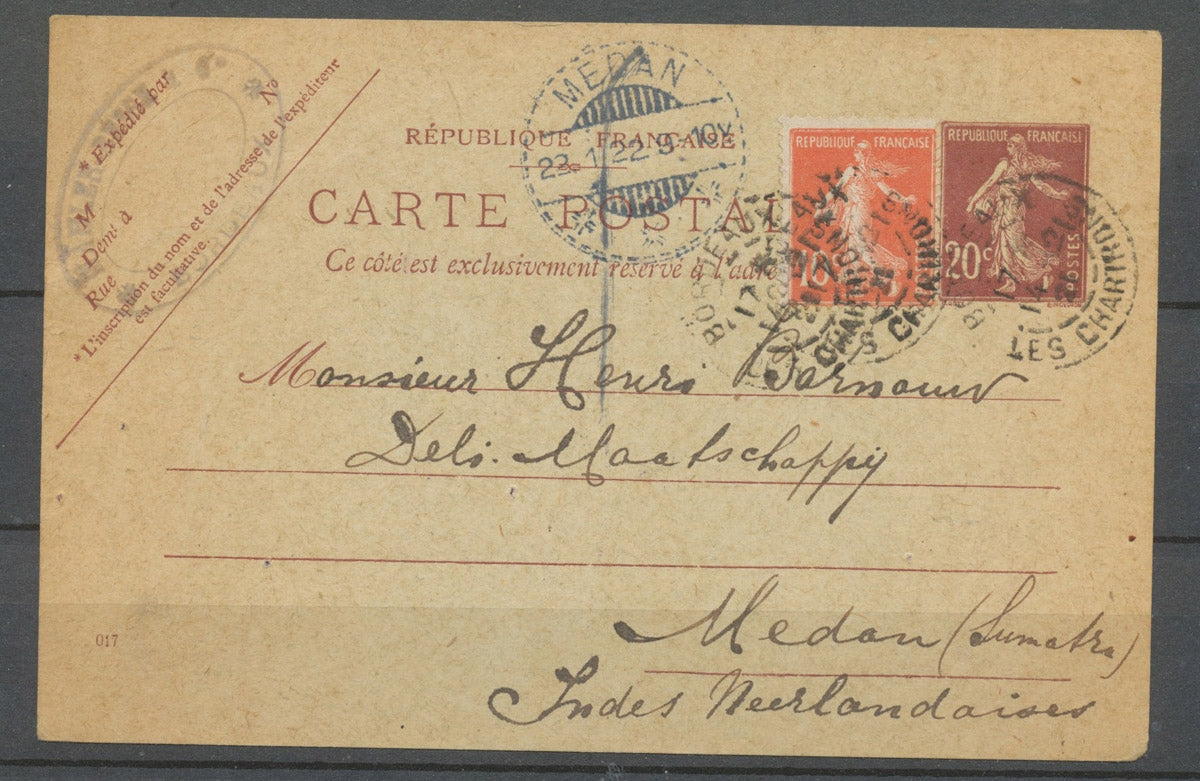 * Expédié par
M
No
Demt à
Rue
* L'inscription du nom et de l'adresse de l'expéditeur
est facultative.
MEDAN
22.1.22 9-10V
RÉPUBLIQUE FRANÇAISE
CARTE POSTAL
Ce côté est exclusivement réservé à l'adr
REPUBLIQUE FRANÇAISE
10
REPUBLIQUE FRANÇAISE
20c
POSTES
LES CHARTRONS
LES CHARTRONS
Monsieur Henri
Deli-Maatschappij
Medan (Sumatra)
Indes Neerlandaises
017